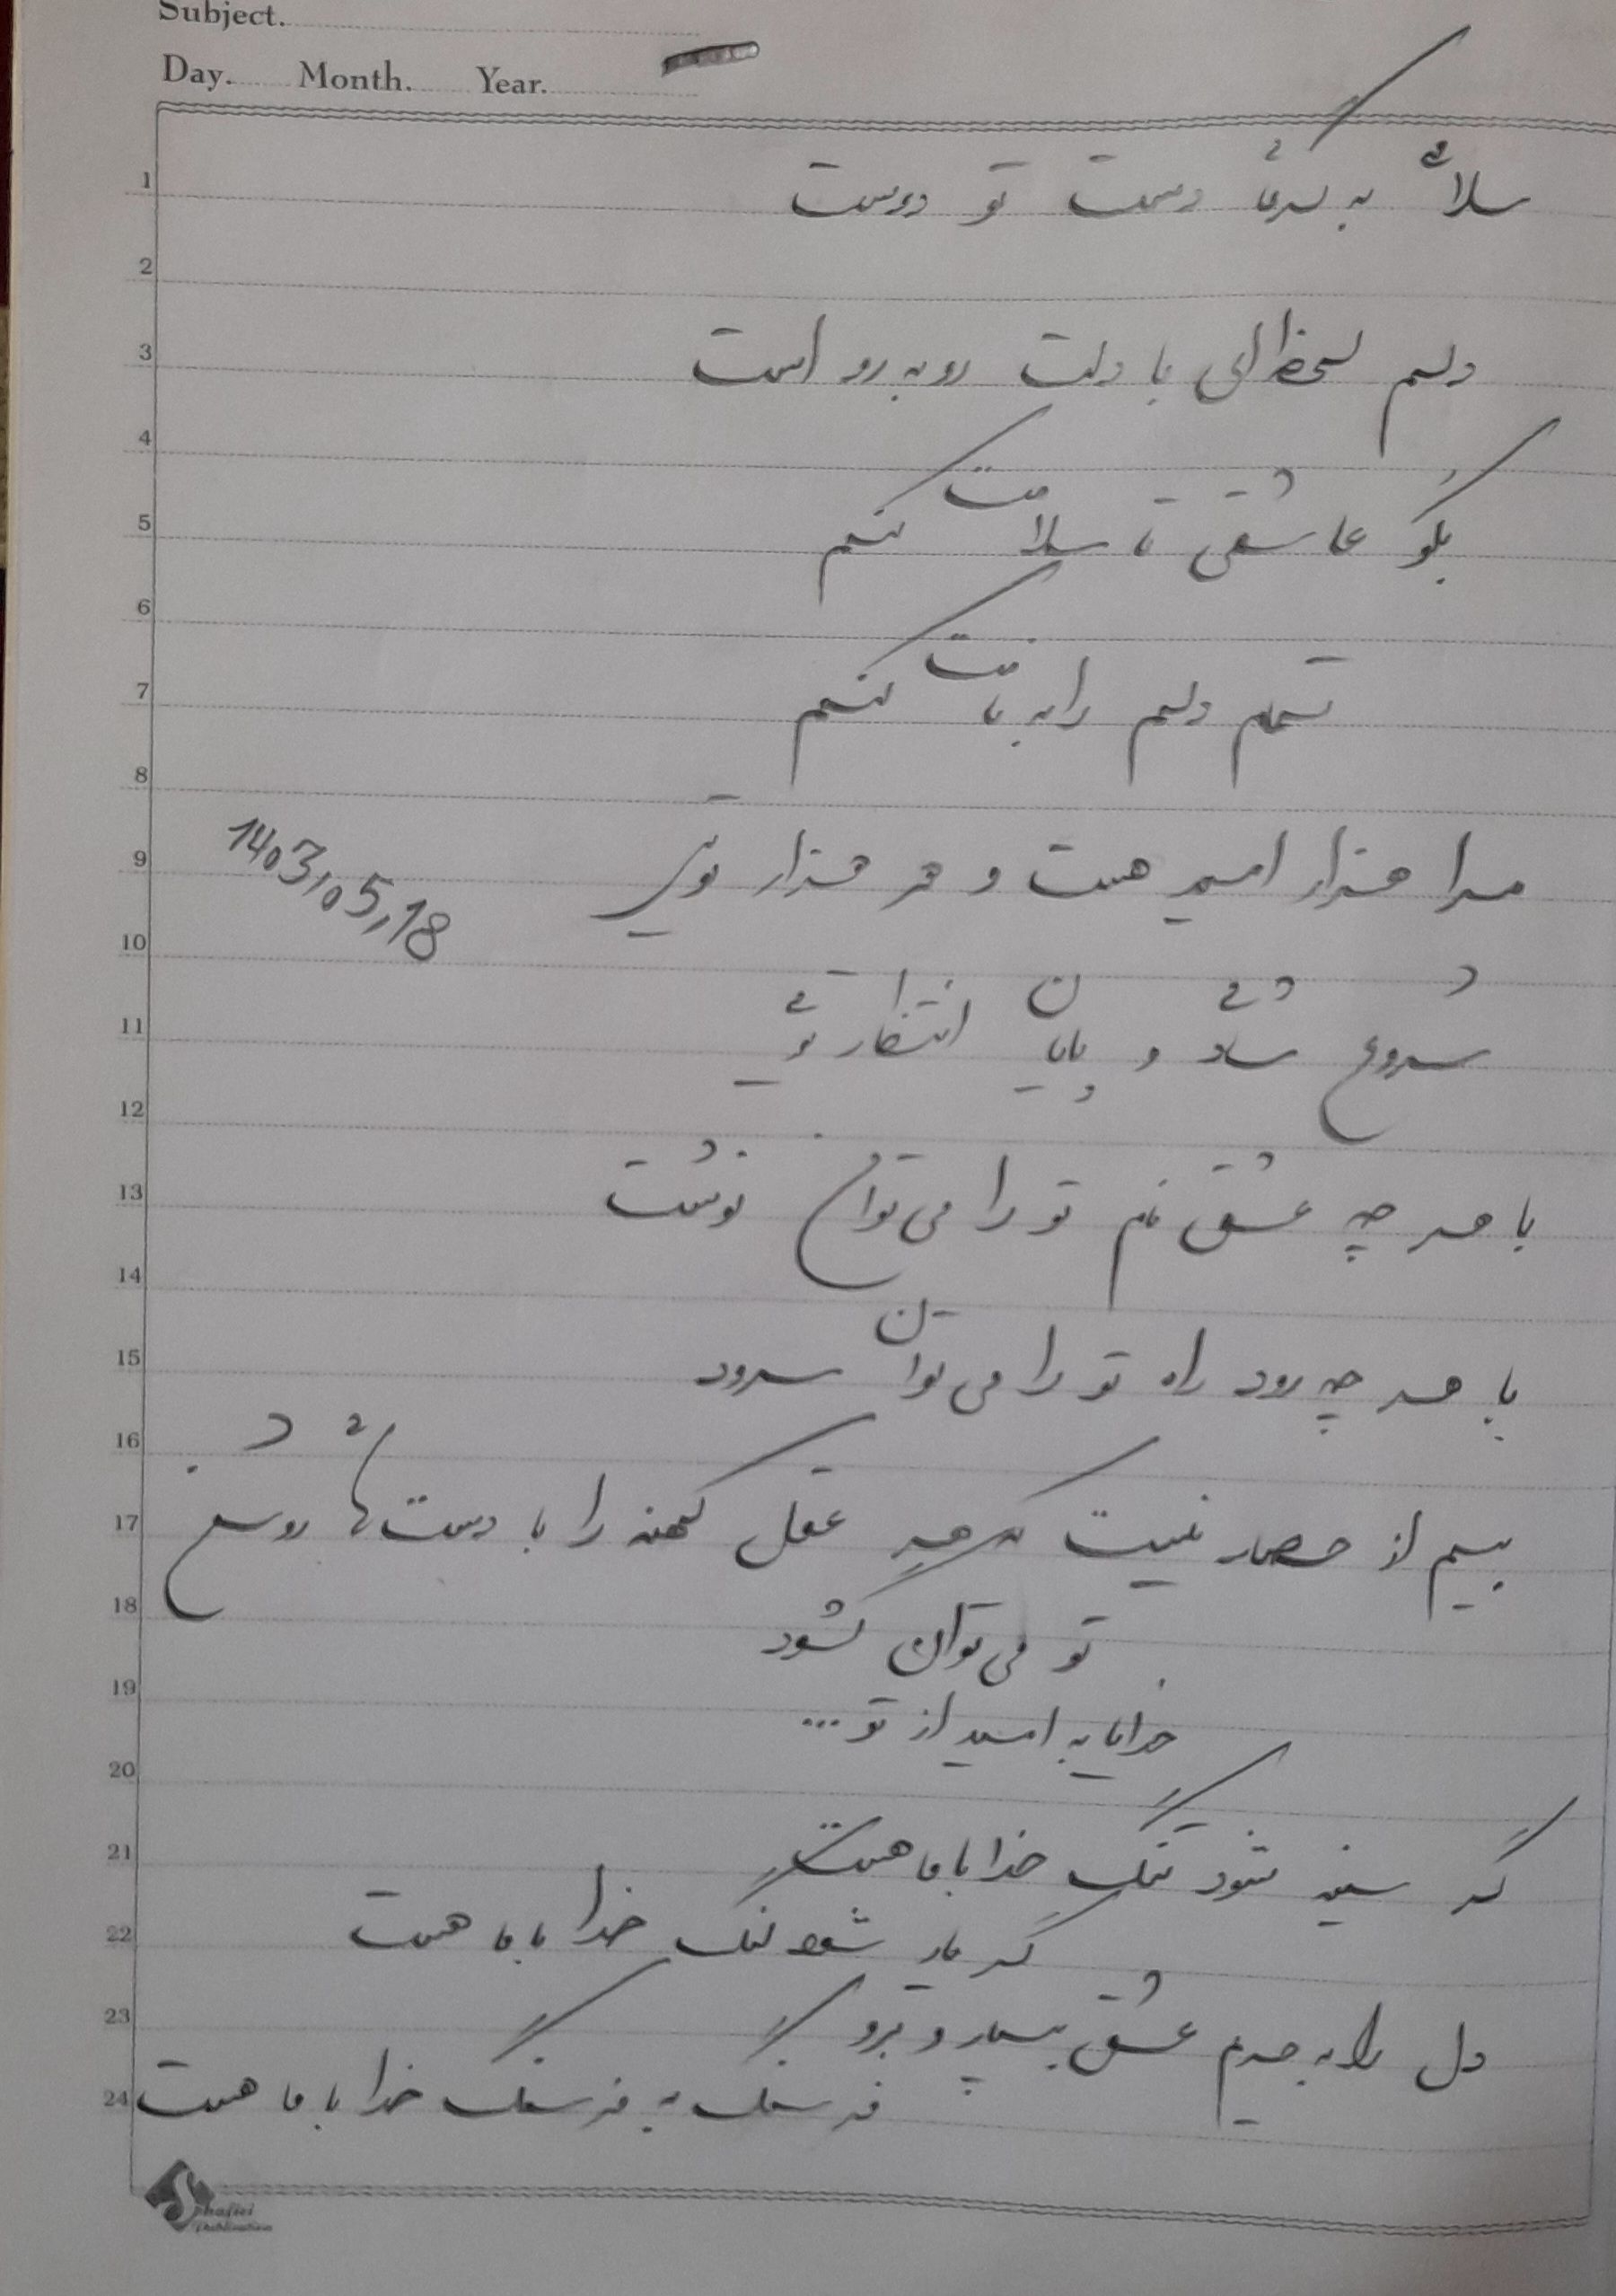 Subject.
Day. Month. Year.
1
سلامی به گرمای دست تو دوست
2
3
دلم لحظه‌ای با دلت روبه‌رو است
4
5
بگو عاشقی تا سلامت کنم
6
7
تمام دلم را به نامت کنم
8
9
مرا هزار امید هست و هر هزار تویی
1403,05,18
10
11
شروع شادی و پایان انتظار تویی
12
13
با هر چه عشق نام تو را می‌توان نوشت
14
15
با هر چه رود راه تو را می‌توان سرود
16
17
بیم از حصار نیست که هر قفل کهنه را با دست‌های روشن
18
تو می‌توان گشود
19
خدایا به امید از تو...
20
21
گر سینه شود تنگ خدا با ما هست
22
گر پای شود لنگ خدا با ما هست
23
دل را به حریم عشق بسپار و برو
24
فرسنگ به فرسنگ خدا با ما هست
Shafiei
Publication